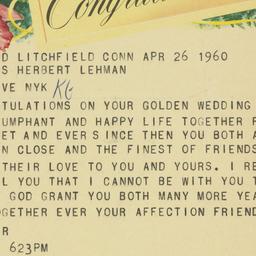 Congratul
D LITCHFIELD CONN APR 26 1960
S HERBERT LEHMAN
VE NYK KG
TULATIONS ON YOUR GOLDEN WEDDING
UMPHANT AND HAPPY LIFE TOGETHER F
ET AND EVER SINCE THEN YOU BOTH A
N CLOSE AND THE FINEST OF FRIENDS
THEIR LOVE TO YOU AND YOURS. I RE
L YOU THAT I CANNOT BE WITH YOU T
GOD GRANT YOU BOTH MANY MORE YEA
OGETHER EVER YOUR AFFECTION FRIEND
R
623PM